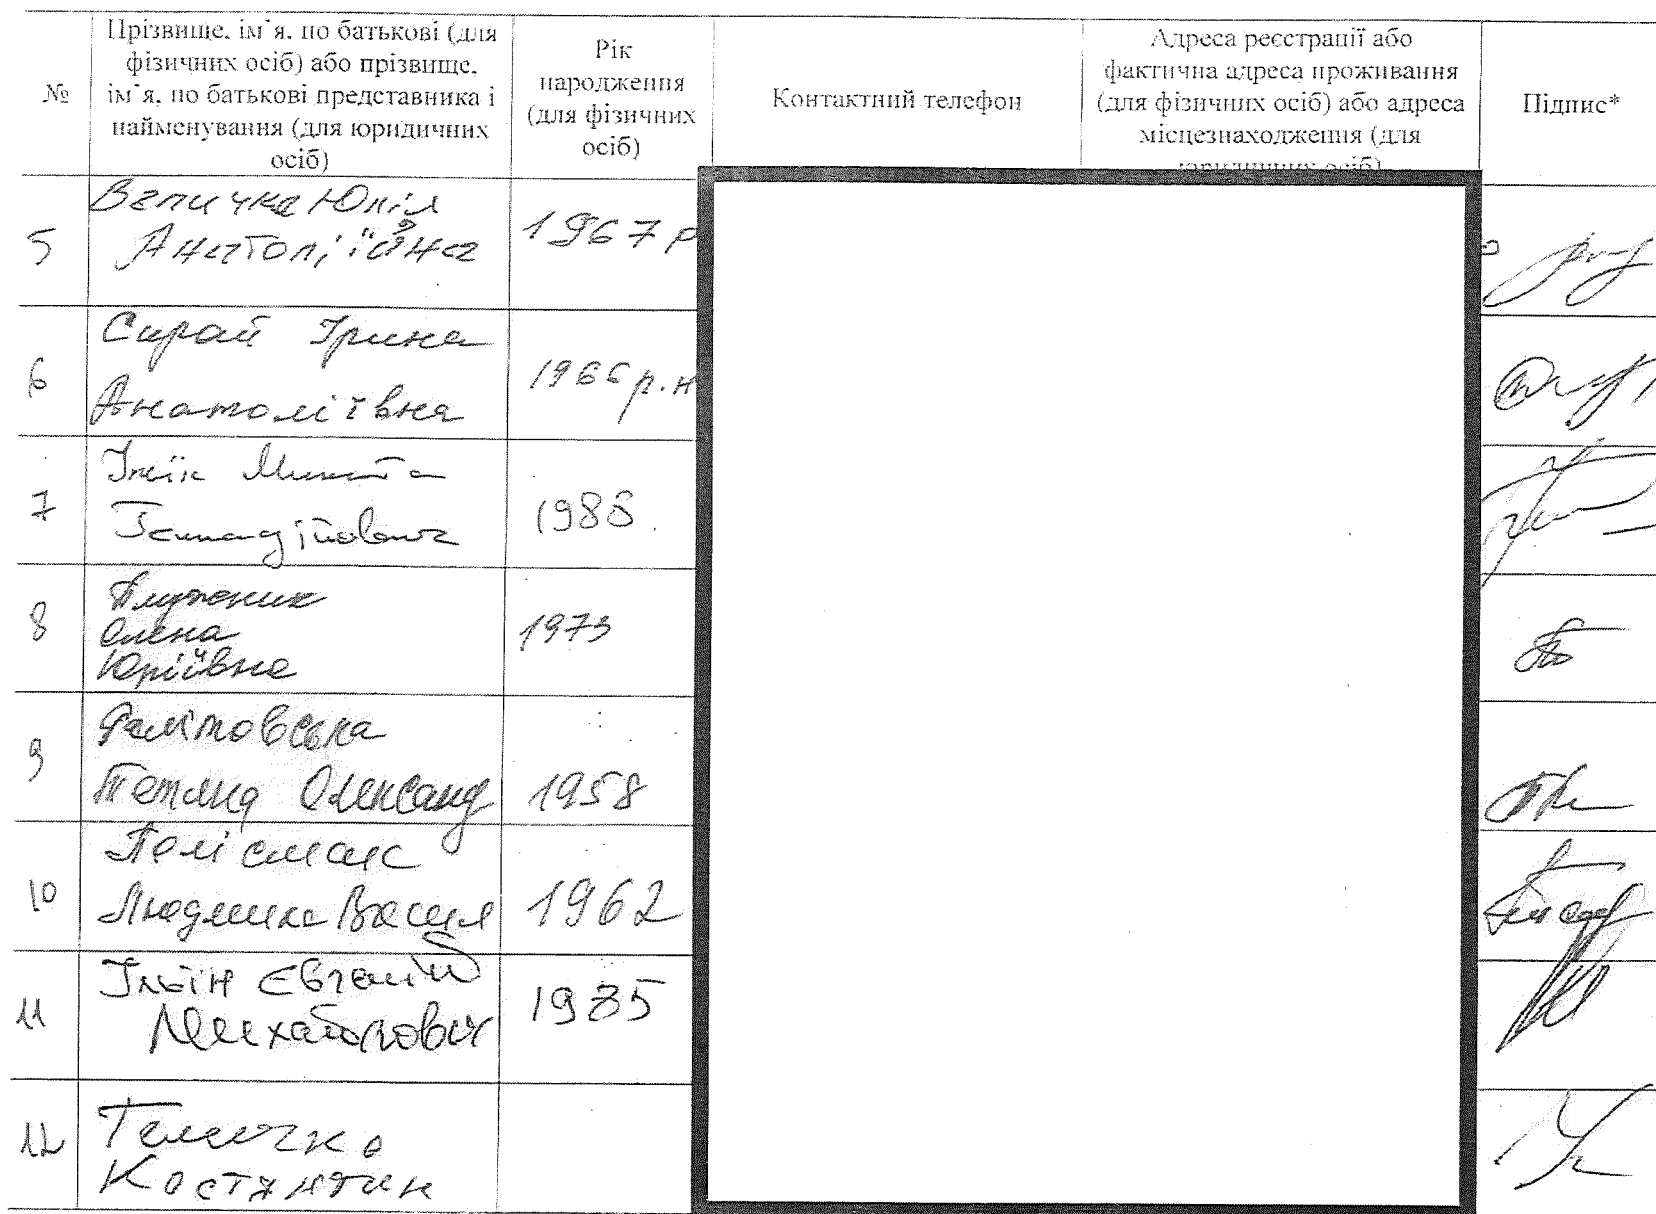 №
Прізвище, ім'я, по батькові (для
фізичних осіб) або прізвище,
ім'я, по батькові представника і
найменування (для юридичних
осіб)
Рік
народження
(для фізичних
осіб)
Контактний телефон
Адреса реєстрації або
фактична адреса проживання
(для фізичних осіб) або адреса
місцезнаходження (для
юридичних осіб)
Підпис*
5
Величка Юлія
1967 р
6
Сирай Ірина
Анатоліївна
1966 р.н
7
Микита
Геннадійович
8
Плужник
Олена
Юріївна
1973
9
Тетяна Олександ
1958
10
Людмила Васил
1962
11
Ільїн Євгеній
Михайлович
1985
12
Костянтин